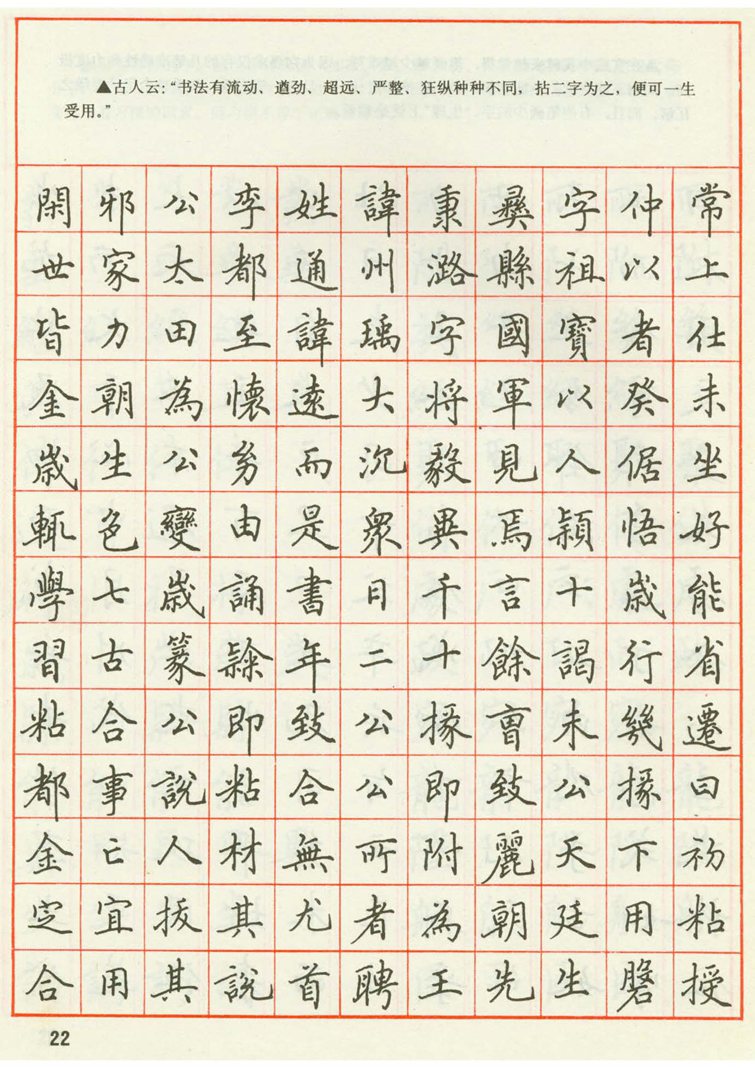 ▲古人云：“书法有流动、遒劲、超远、严整、狂纵种种不同，拈二字为之，便可一生
受用。”
閑邪公李姓諱秉彝字仲常
世家太都通州潞縣祖以上
皆力田至諱瑀字國寶者仕
金朝為懷遠大將軍以癸未
歲生公㓜而沉毅見人倨坐
輒色變由是衆異焉穎悟好
學七歲誦書日千言十歲能
習古篆隸年二十餘謁行省
粘合公即致公掾曹未幾遷
都事說粘合公即致公掾曰
金亡人材無所附麗天下初
定宜拔其尤者為朝廷用粘
合用其說首聘王先生磐授
22